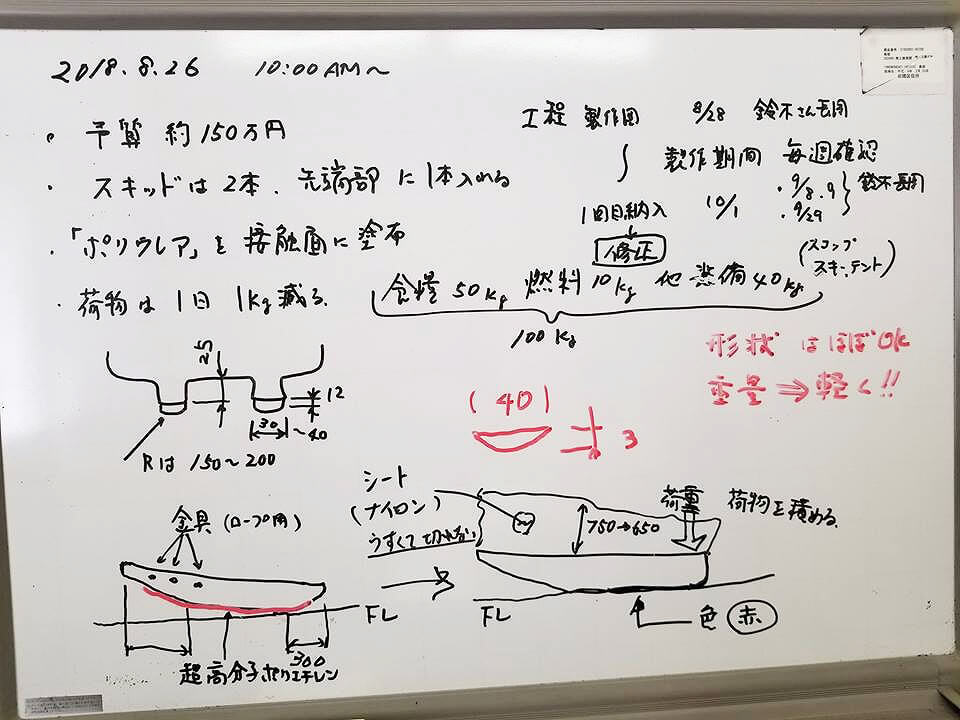 2018.8.26 10:00AM〜
・予算 約150万円
・スキッドは2本、先端部に1本入れる
・「ポリウレア」を接触面に塗布
・荷物は1日 1kg減る。
工程 製作図 8/28 鈴木さん長岡
製作期間 毎週確認
・9/8.9
・9/29
鈴木長岡
1回目納入 10/1
修正
食糧50kg 燃料10kg 他装備40kg
(スコップ
スキー、テント)
100kg
形状はほぼOK
重量⇒軽く!!
25
12
30
〜40
Rは150〜200
(40)
3
金具(ロープ用)
FL
300
超高分子ポリエチレン
シート
(ナイロン)
750→650
荷重
荷物を積める。
FL
色 赤